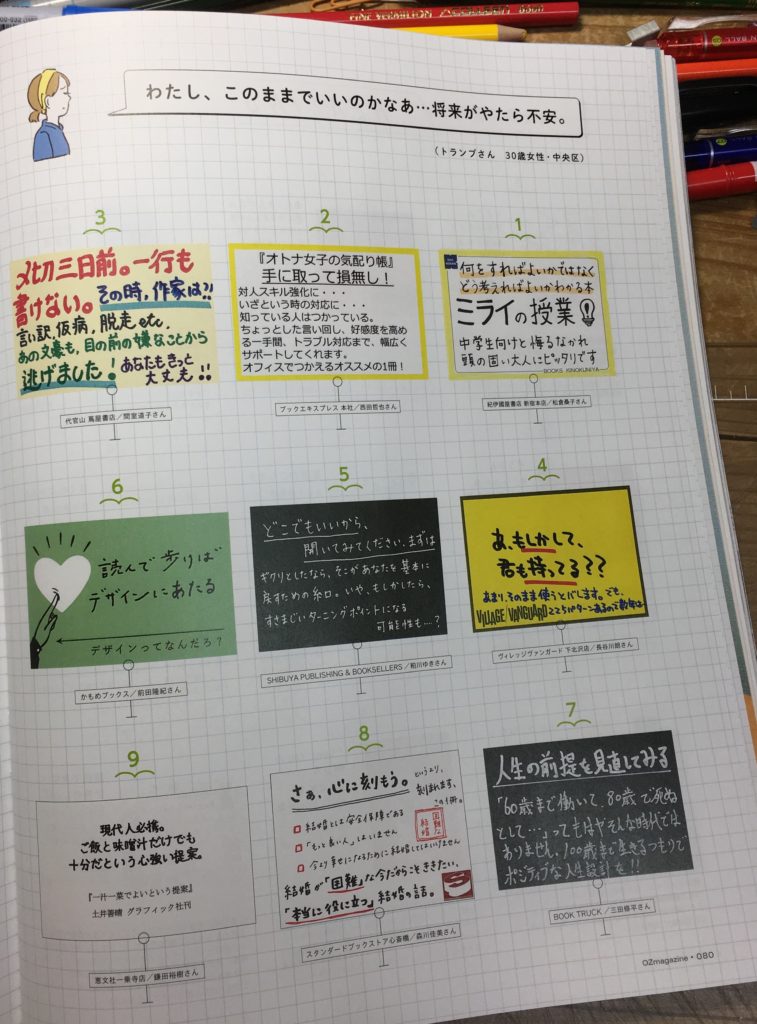 FINE VERMILION
わたし、このままでいいのかなあ…将来がやたら不安。
（トランプさん　30歳女性・中央区）
1
何をすればよいかではなく
どう考えればよいかわかる本
ミライの授業
中学生向けと侮るなかれ
頭の固い大人にピッタリです
BOOKS KINOKUNIYA
紀伊國屋書店 新宿本店／松倉桑子さん
2
『オトナ女子の気配り帳』
手に取って損無し！
対人スキル強化に・・・
いざという時の対応に・・・
知っている人はつかっている。
ちょっとした言い回し、好感度を高め
る一手間、トラブル対応まで、幅広く
サポートしてくれます。
オフィスでつかえるオススメの1冊！
ブックエキスプレス 本社／西田哲也さん
3
〆切三日前。一行も
書けない。その時、作家は?!
言い訳,仮病,脱走etc.
あの文豪も、目の前の嫌なことから
逃げました！あなたもきっと
大丈夫!!
代官山 蔦屋書店／間室道子さん
4
あ、もしかして、
君も持ってる??
あまり、そのまま使うとバレます。でも、
VILLAGE/VANGUARD
ヴィレッジヴァンガード 下北沢店／長谷川朗さん
5
どこでもいいから、
開いてみてください、まずは
ギクリとしたなら、そこがあなたを基本に
戻すための糸口。いや、もしかしたら、
すさまじいターニングポイントになる
可能性も…？
SHIBUYA PUBLISHING & BOOKSELLERS／粕川ゆきさん
6
読んで歩けば
デザインにあたる
デザインってなんだろ？
かもめブックス／前田隆紀さん
7
人生の前提を見直してみる
「60歳まで働いて、80歳で死ぬ
として…」ってもはやそんな時代では
ありません。100歳まで生きるつもりで
ポジティブな人生設計を!!
BOOK TRUCK／三田修平さん
8
さぁ、心に刻もう。
というより、
刻まれます、
この1冊。
結婚とは安全保障である
「もっと良い人」はいません
今より幸せになるために結婚してはいけません
困難な
結婚
結婚が「困難」な今だからこそききたい、
「本当に役に立つ」結婚の話。
スタンダードブックストア心斎橋／森川佳美さん
9
現代人必携。
ご飯と味噌汁だけでも
十分だという心強い提案。
『一汁一菜でよいという提案』
土井善晴 グラフィック社刊
恵文社一乗寺店／鎌田裕樹さん
OZmagazine・080